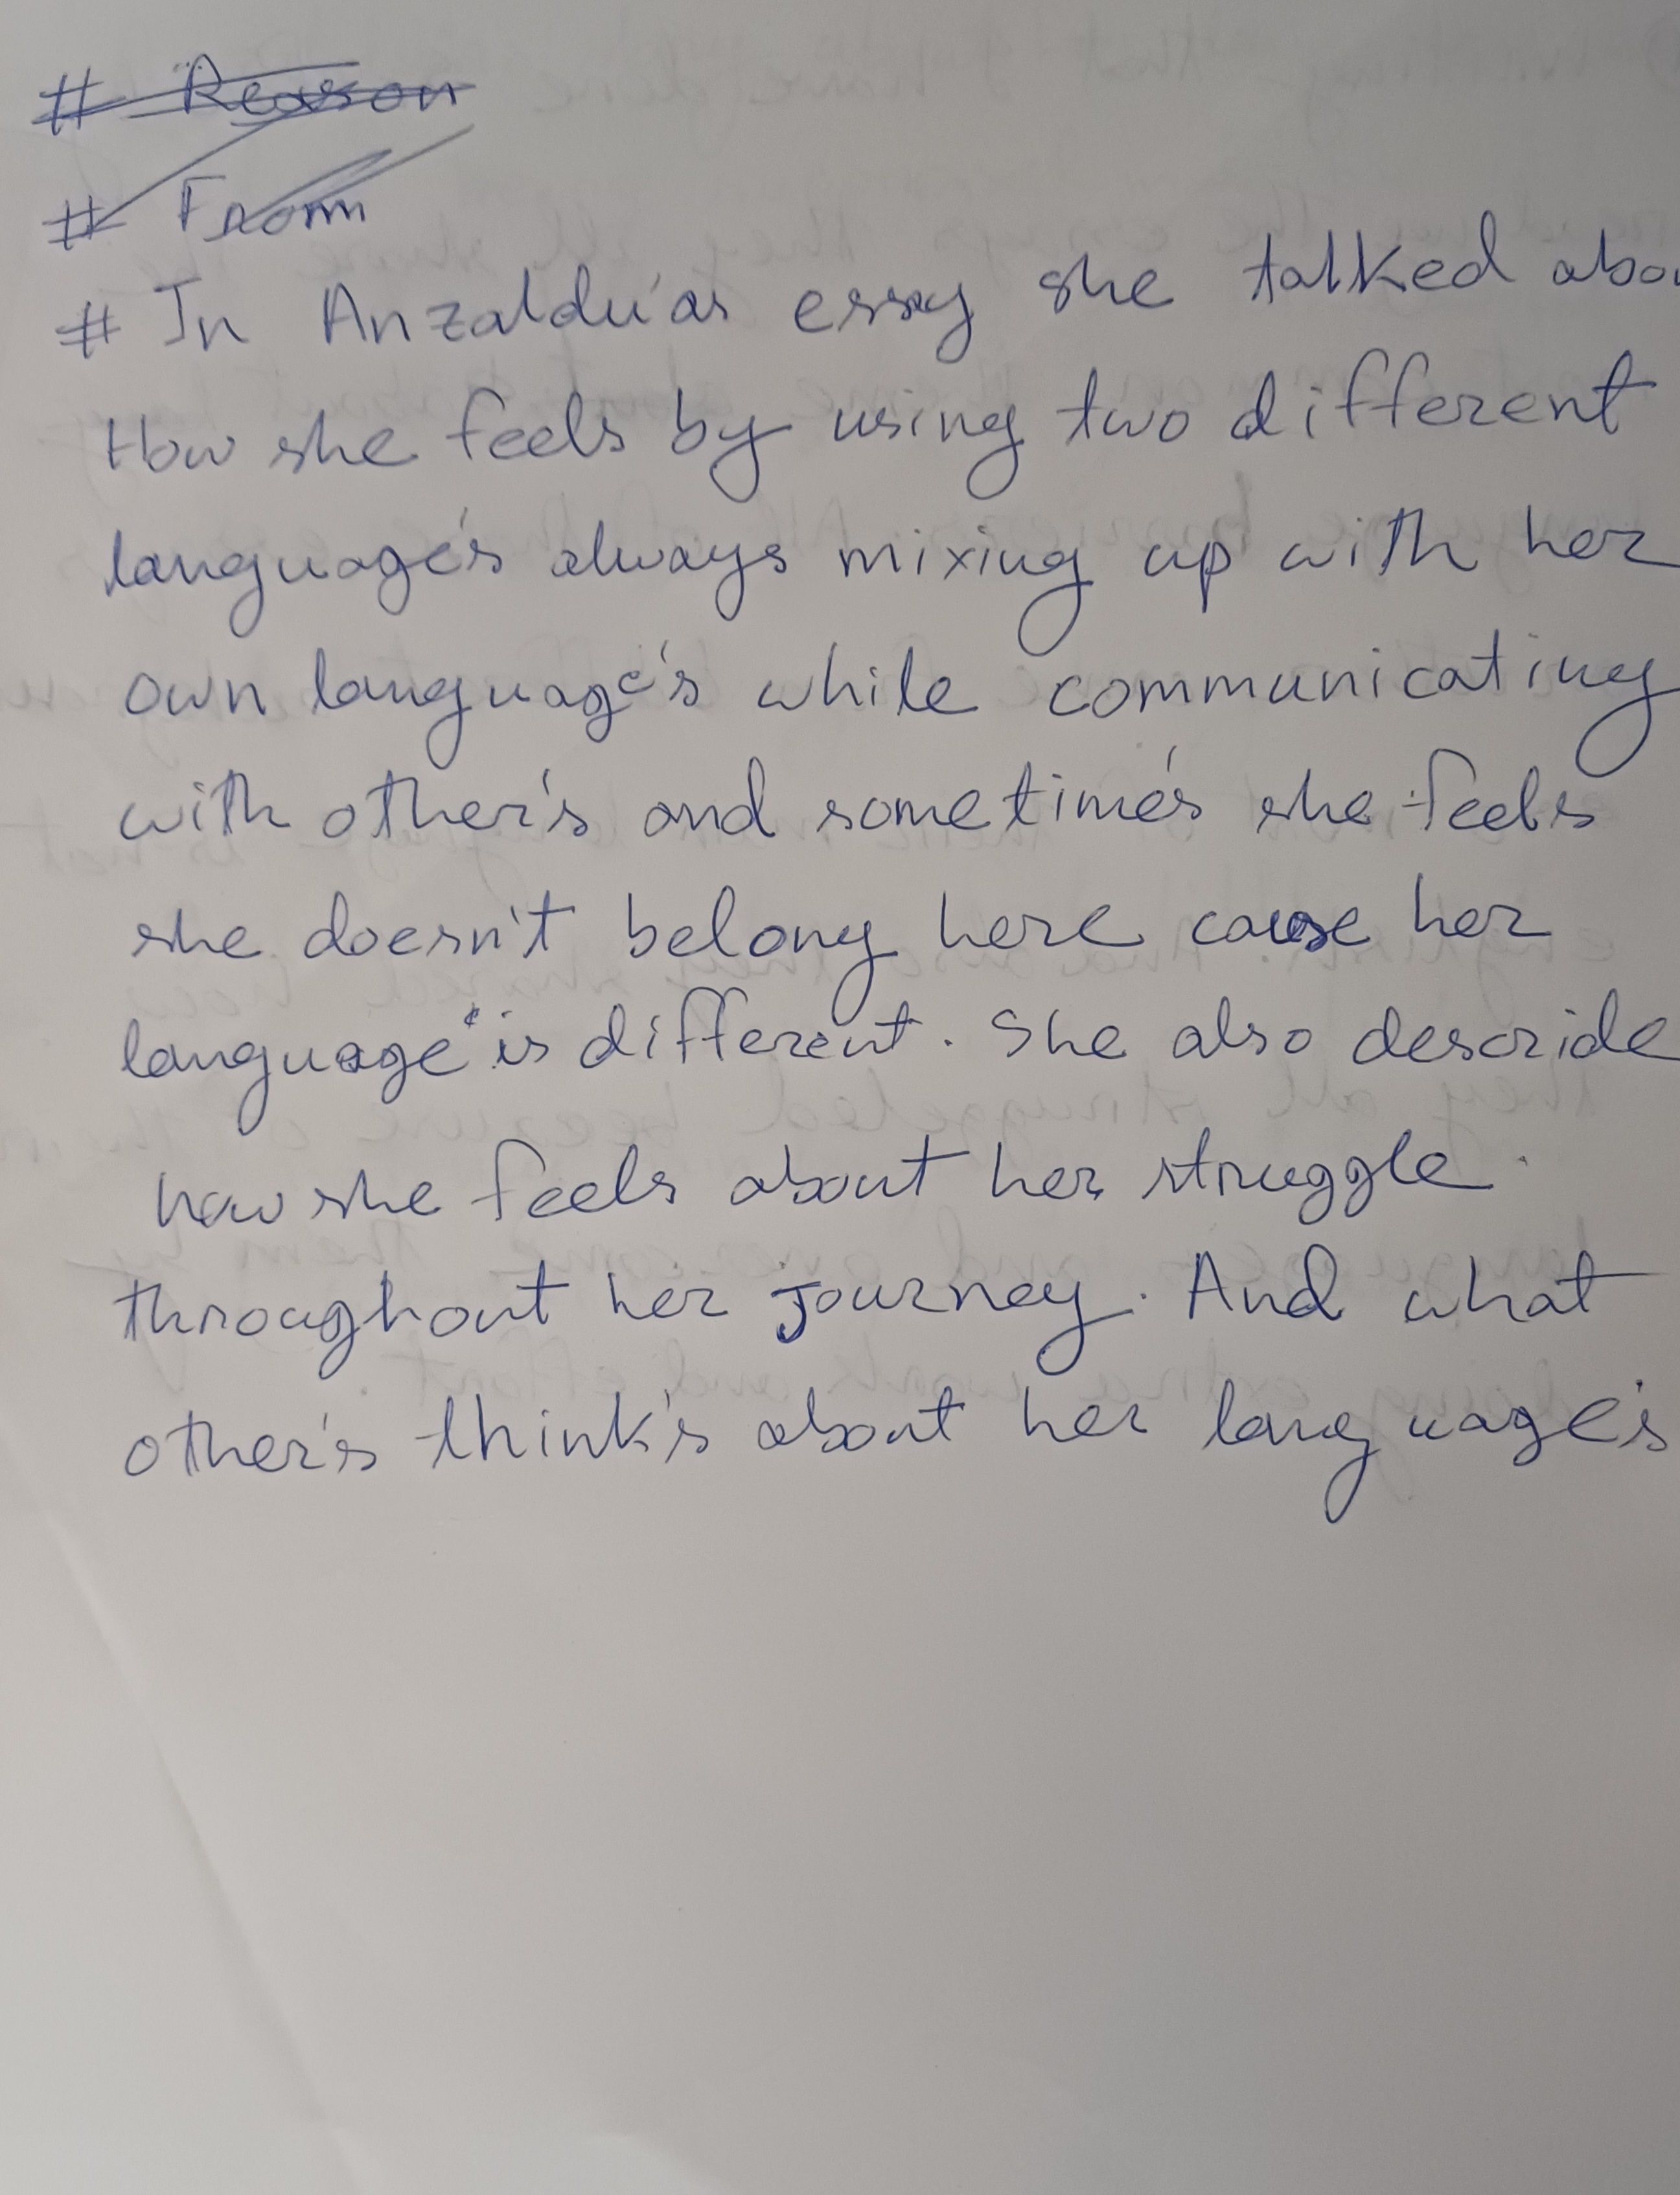 # Reason
# From
# In Anzaldu'as essay she talked abou
How she feels by using two different
language's always mixing up with her
own language's while communicating
with other's and sometime's she feels
she doesn't belong here cause her
language is different. She also descride
how she feels about her struggle.
throughout her journey. And what
other's think's about her language's